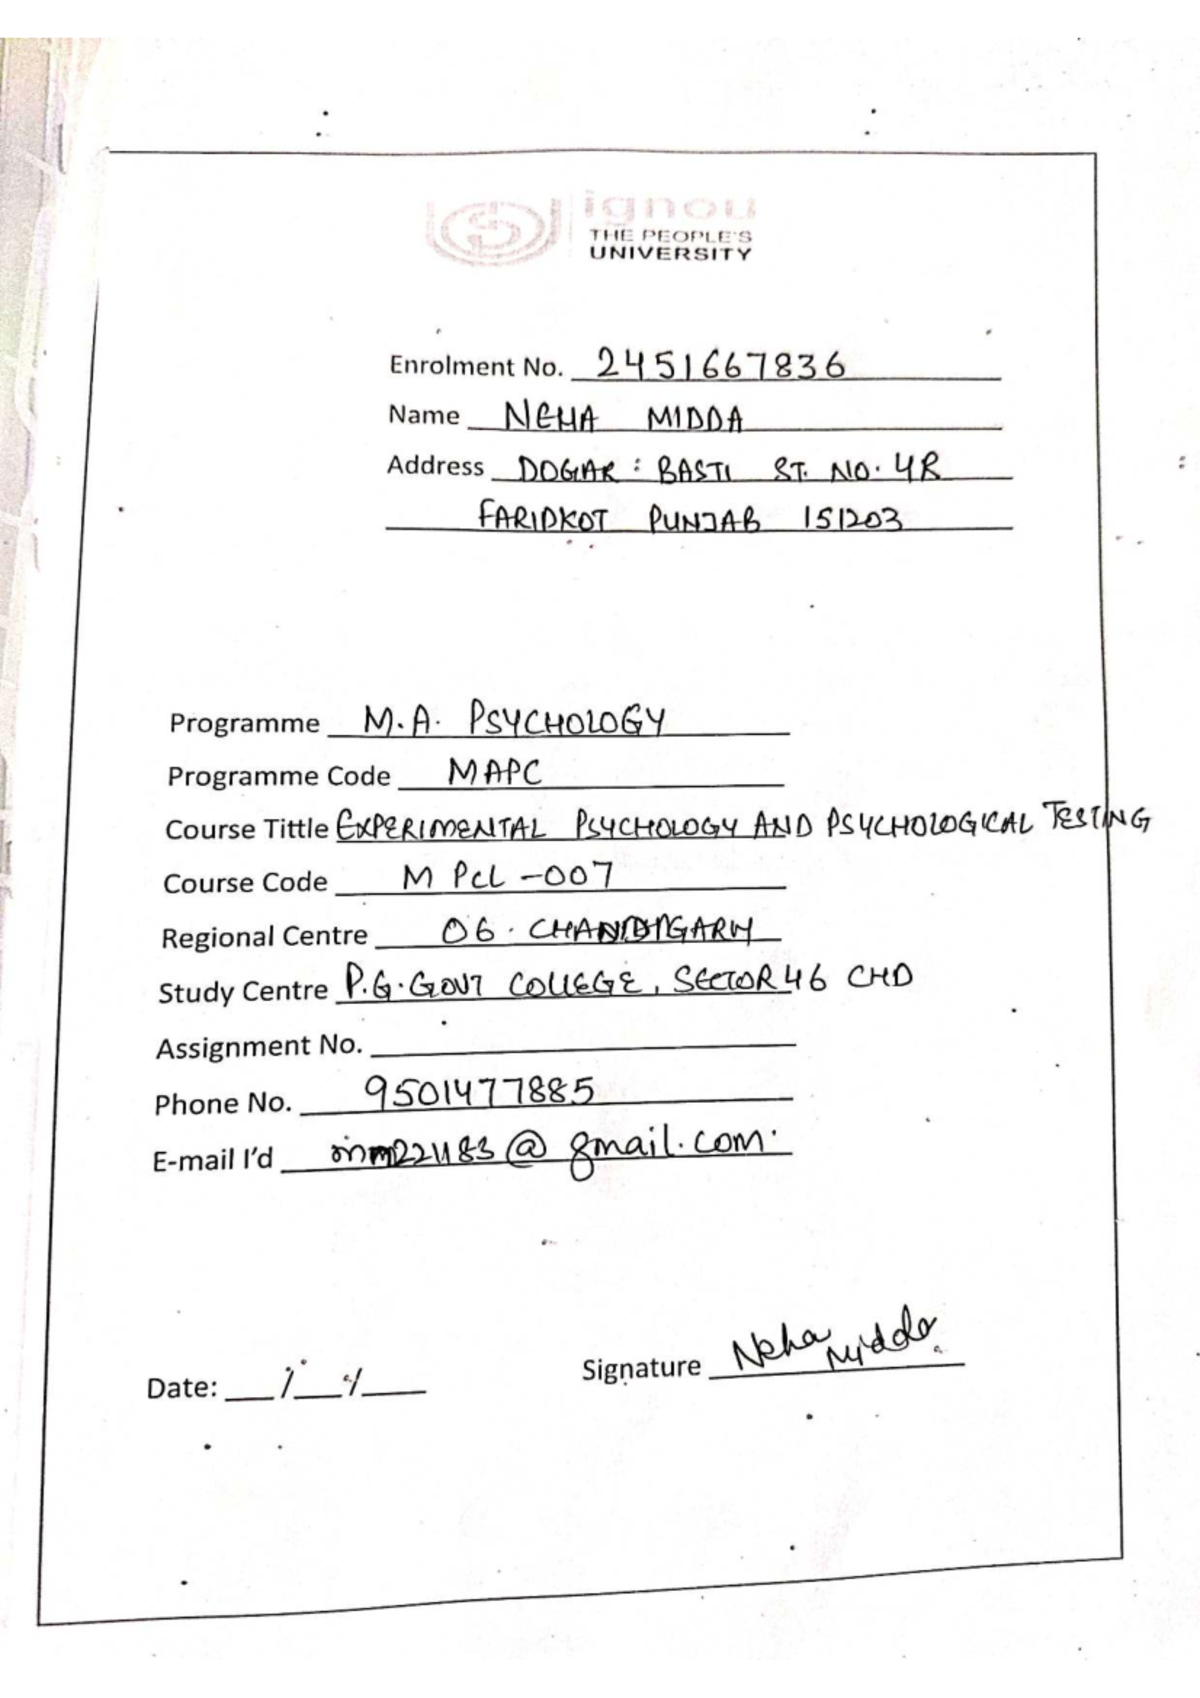 ignou
THE PEOPLE'S
UNIVERSITY
Enrolment No. 2451667836
Name NEHA MIDDA
Address DOGAR : BASTI ST. NO. 4R
FARIDKOT PUNJAB 151203
Programme M.A. PSYCHOLOGY
Programme Code MAPC
Course Tittle EXPERIMENTAL PSYCHOLOGY AND PSYCHOLOGICAL TESTING
Course Code M PCL -007
Regional Centre 06. CHANDIGARH
Study Centre P.G. GOVT COLLEGE, SECTOR 46 CHD
Assignment No.
Phone No. 9501477885
E-mail I'd @ gmail.com.
Date: / /
Signature Neha Midda